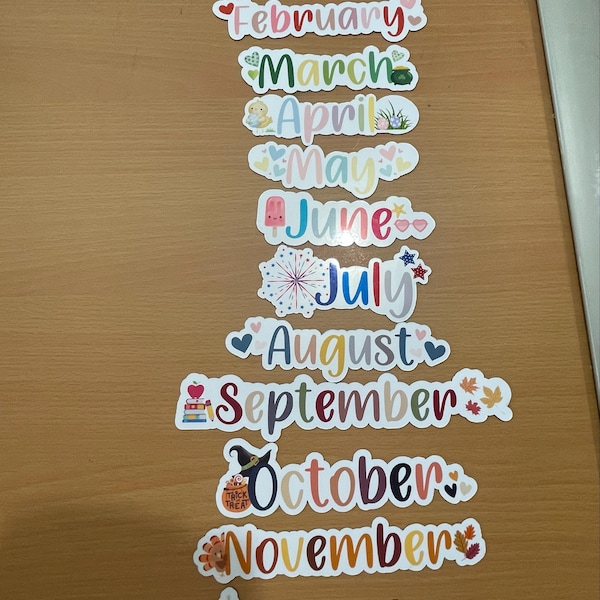 February
March
April
May
June
July
August
September
October
TRICK OR TREAT
November